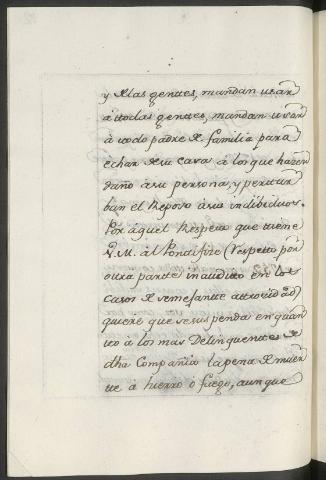 y de las gentes, mandan usar
à todas gentes, mandan usar
à todo padre de familia para
echar de su casa à los que hazen
daño à su persona, y pertur
ban el Reposo à sus indibiduos.
Por aquel Respeto que tiene
V.M. àl Pontifize (Respetto por
otra parte inaudito en los
casos de semejante atrocidad)
quiere que se suspenda en quan
to à los mas Delinquentes de
dha Compañia la pena de muer
te à hierro ò fuego, aunque